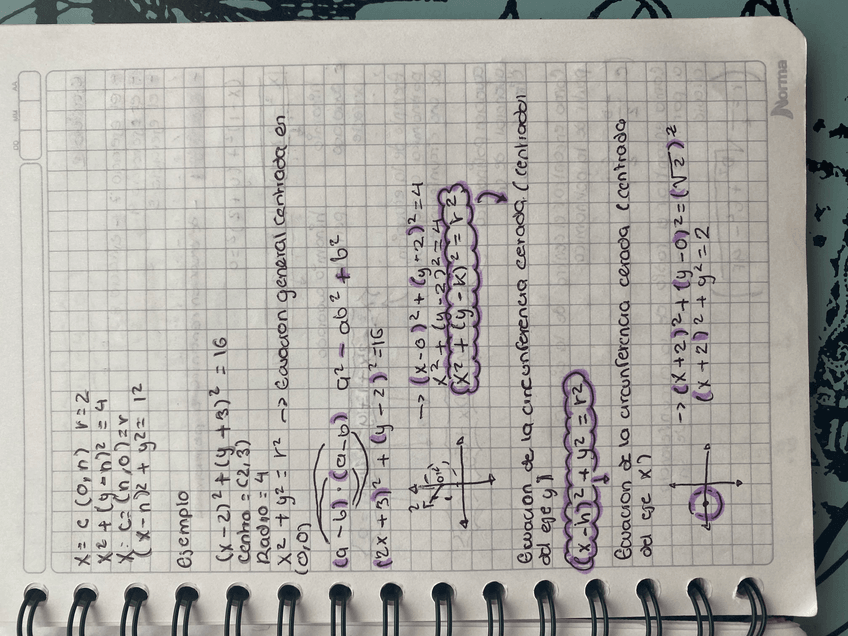 x = c (0,n) r=2
x² + (y-n)² = 4
x: c=(n,0)=r
(x-n)² + y² = 12
Ejemplo
(x-2)² + (y+3)² = 16
Centro = (2,3)
Radio = 4
x² + y² = r² → Ecuacion general centrada en
(0,0)
(a-b)·(a-b) a² - ab² + b²
(2x+3)² + (y-2)² = 16
→ (x-0)² + (y-2)² = 4
x² + (y-2)² = 4
x² + (y-k)² = r²
Ecuacion de la circunferencia cerada (centrada
del eje y)
(x-h)² + y² = r²
Ecuación de la circunferencia cerada (centrada
del eje x)
→ (x+2)² + (y-0)² = (√2)²
(x+2)² + y² = 2
Norma